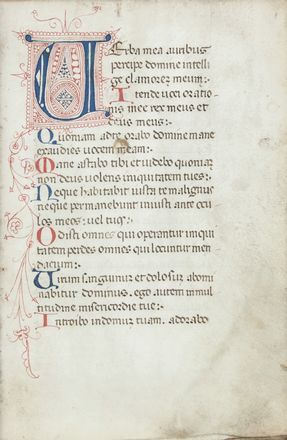 VErba mea auribus
percipe domine intelli
ge clamorez meum:.
Intende uoci oratio-
nis mee rex meus et
deus meus:.
Quoniam ad te orabo domine mane
exaudies uocem meam:.
Mane astabo tibi et uidebo quoniaz
non deus uolens iniquitatem tu es:.
Neque habitabit iuxta te malignus
neque permanebunt iniusti ante ocu
los meos: uel tuos:.
Odisti omnes qui operantur iniqui
tatem perdes omnes qui locuntur men
dacium:.
Uirum sanguinum et dolosum abomi
nabitur dominus. ego autem in mul
titudine misericordie tue:.
Introibo in domum tuam. adorabo